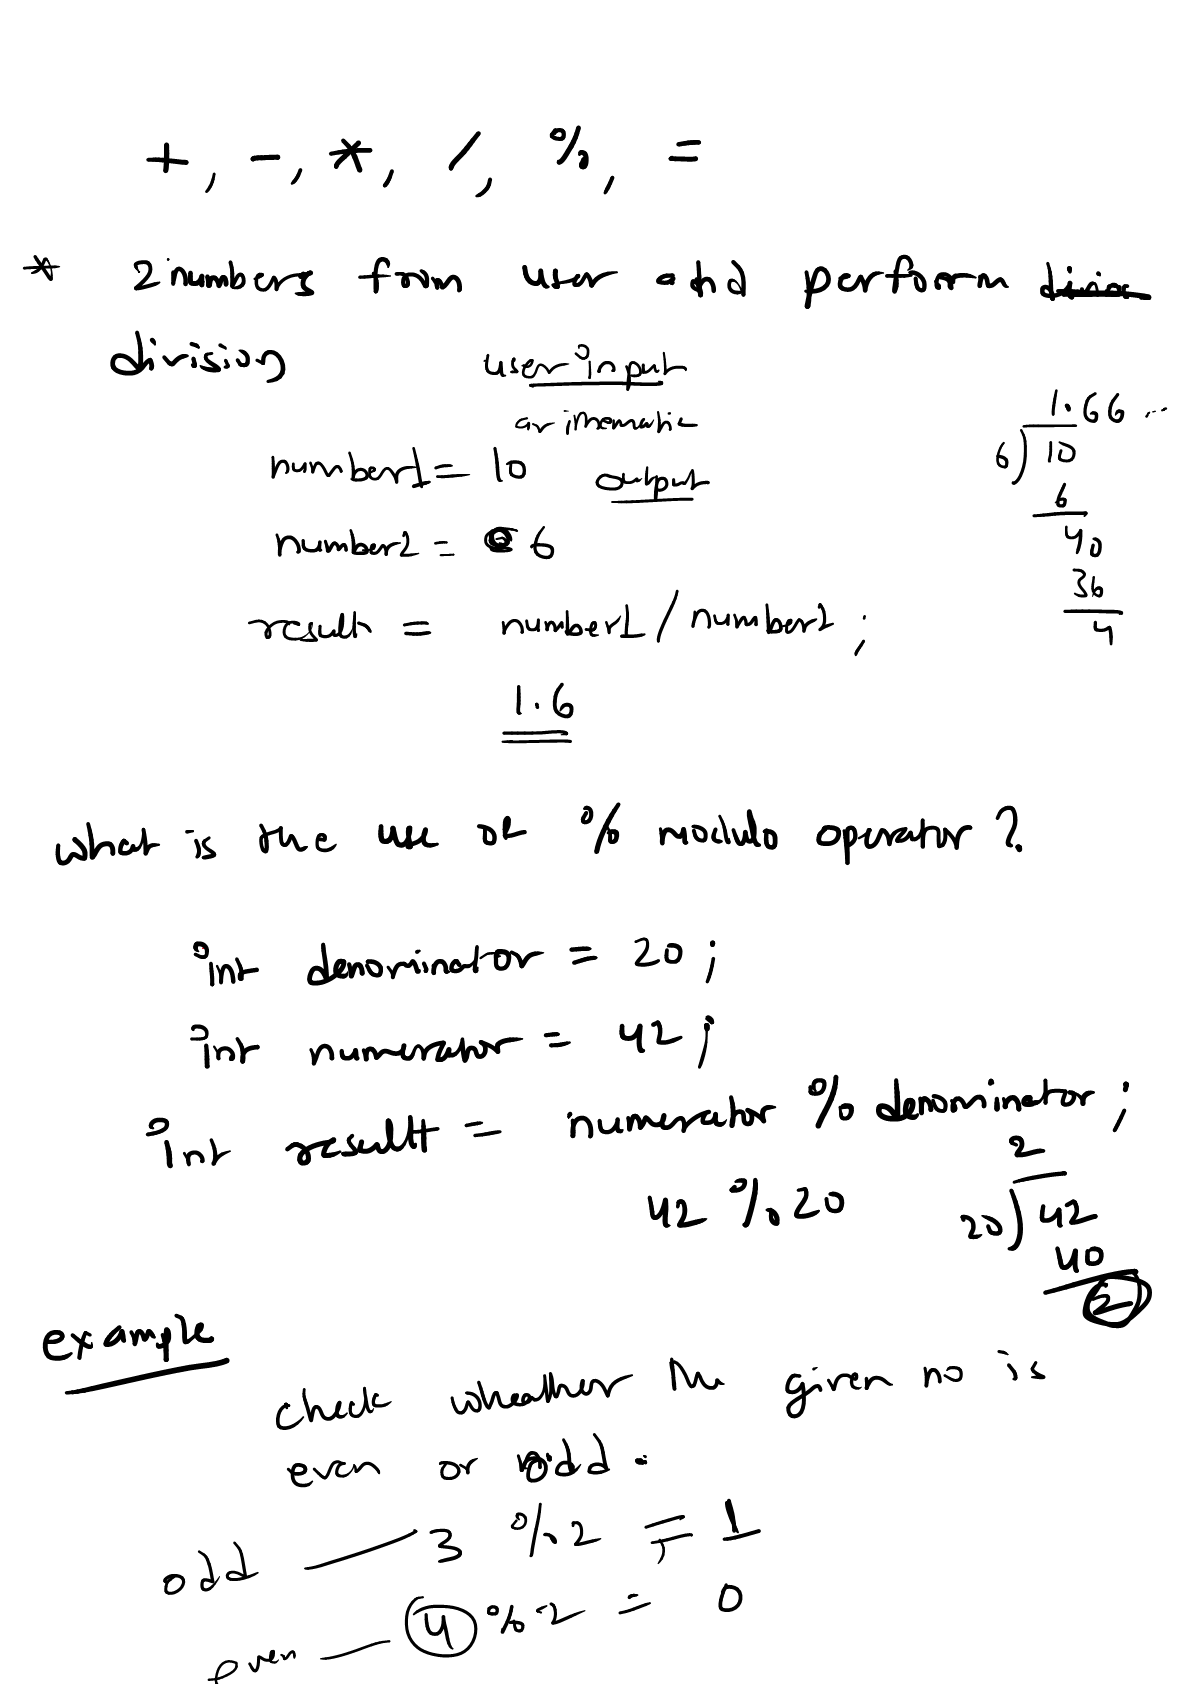 +, -, *, /, %, =
* 2 numbers from user and perform
division
user input
arithematic
output
number1 = 10
number2 = 6
result = number1 / number2 ;
1.6
1.66 ...
6) 10
6
40
36
4
what is the use of % modulo operator ?
int denominator = 20 ;
int numerator = 42 ;
int result = numerator % denominator ;
42 % 20
2
20) 42
40
2
example
check wheather the given no is
even or odd .
odd — 3 % 2 = 1
even — 4 % 2 = 0